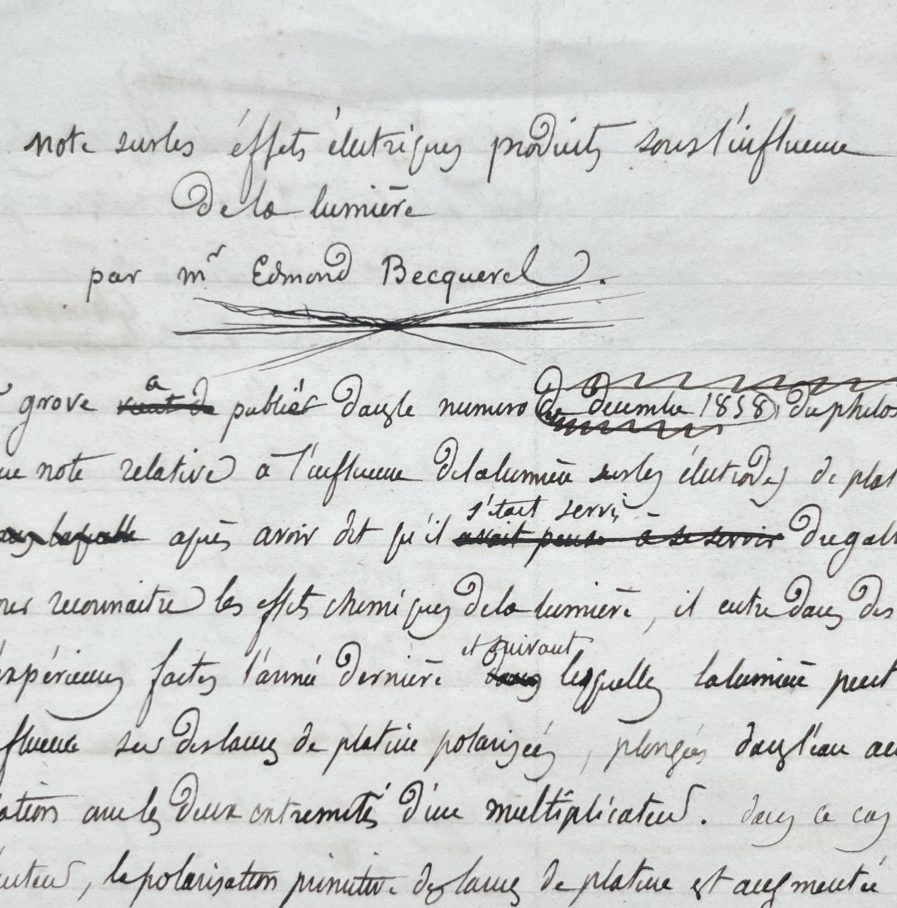 note sur les éffets éléctriques produits sous l'influence
de la lumière
par mr Edmond Becquerel.
grove a vient de publiér dans le numero de décembre 1858, du philos
note relative à l'influence de la lumière sur les éléctrodes de plat
s'était servi
après avoir dit qu'il avait pensé à se servir du galv
reconnaitre les effets chimiques de la lumière, il entre dans des
et suivant
expériences faites l'année dernière dans lesquelles la lumière peut
fluence sur des lames de platine polarisées, plongées dans l'eau
ation avec les deux extremités d'un multiplicateur. dans ce cas
auteur, la polarisation primitive des lames de platine est augmentée